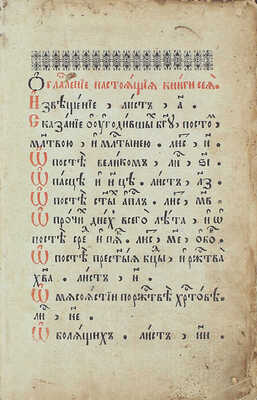 Ѻглавленїе настоѧщїѧ книги сеѧ̀
Извѣщенїе , листъ , а .
Сказанїе ѡ҆ угодившы бг҃у , посто
мл҃твою , и мл҃тынею . лис , и
Ѿ постѣ великомъ , ли , ѕі .
Ѡ пасцѣ и҆ не . листъ , лз
Ѡ постѣ ст҃ы ап҃лъ . лис , мв
Ѡ прочїи днех всего лѣта , и ѡ
постѣ сре и пѧ . лис , ме , ѡбо
Ѡ постѣ прест҃ыѧ бц҃ы , и ржтва
хв҃а . листъ , н .
Ѡ мѧсоѧстїи по ржтвѣ хрⷭ҇товѣ
ли , не .
Ѡ болѧщихъ . листъ , нн .